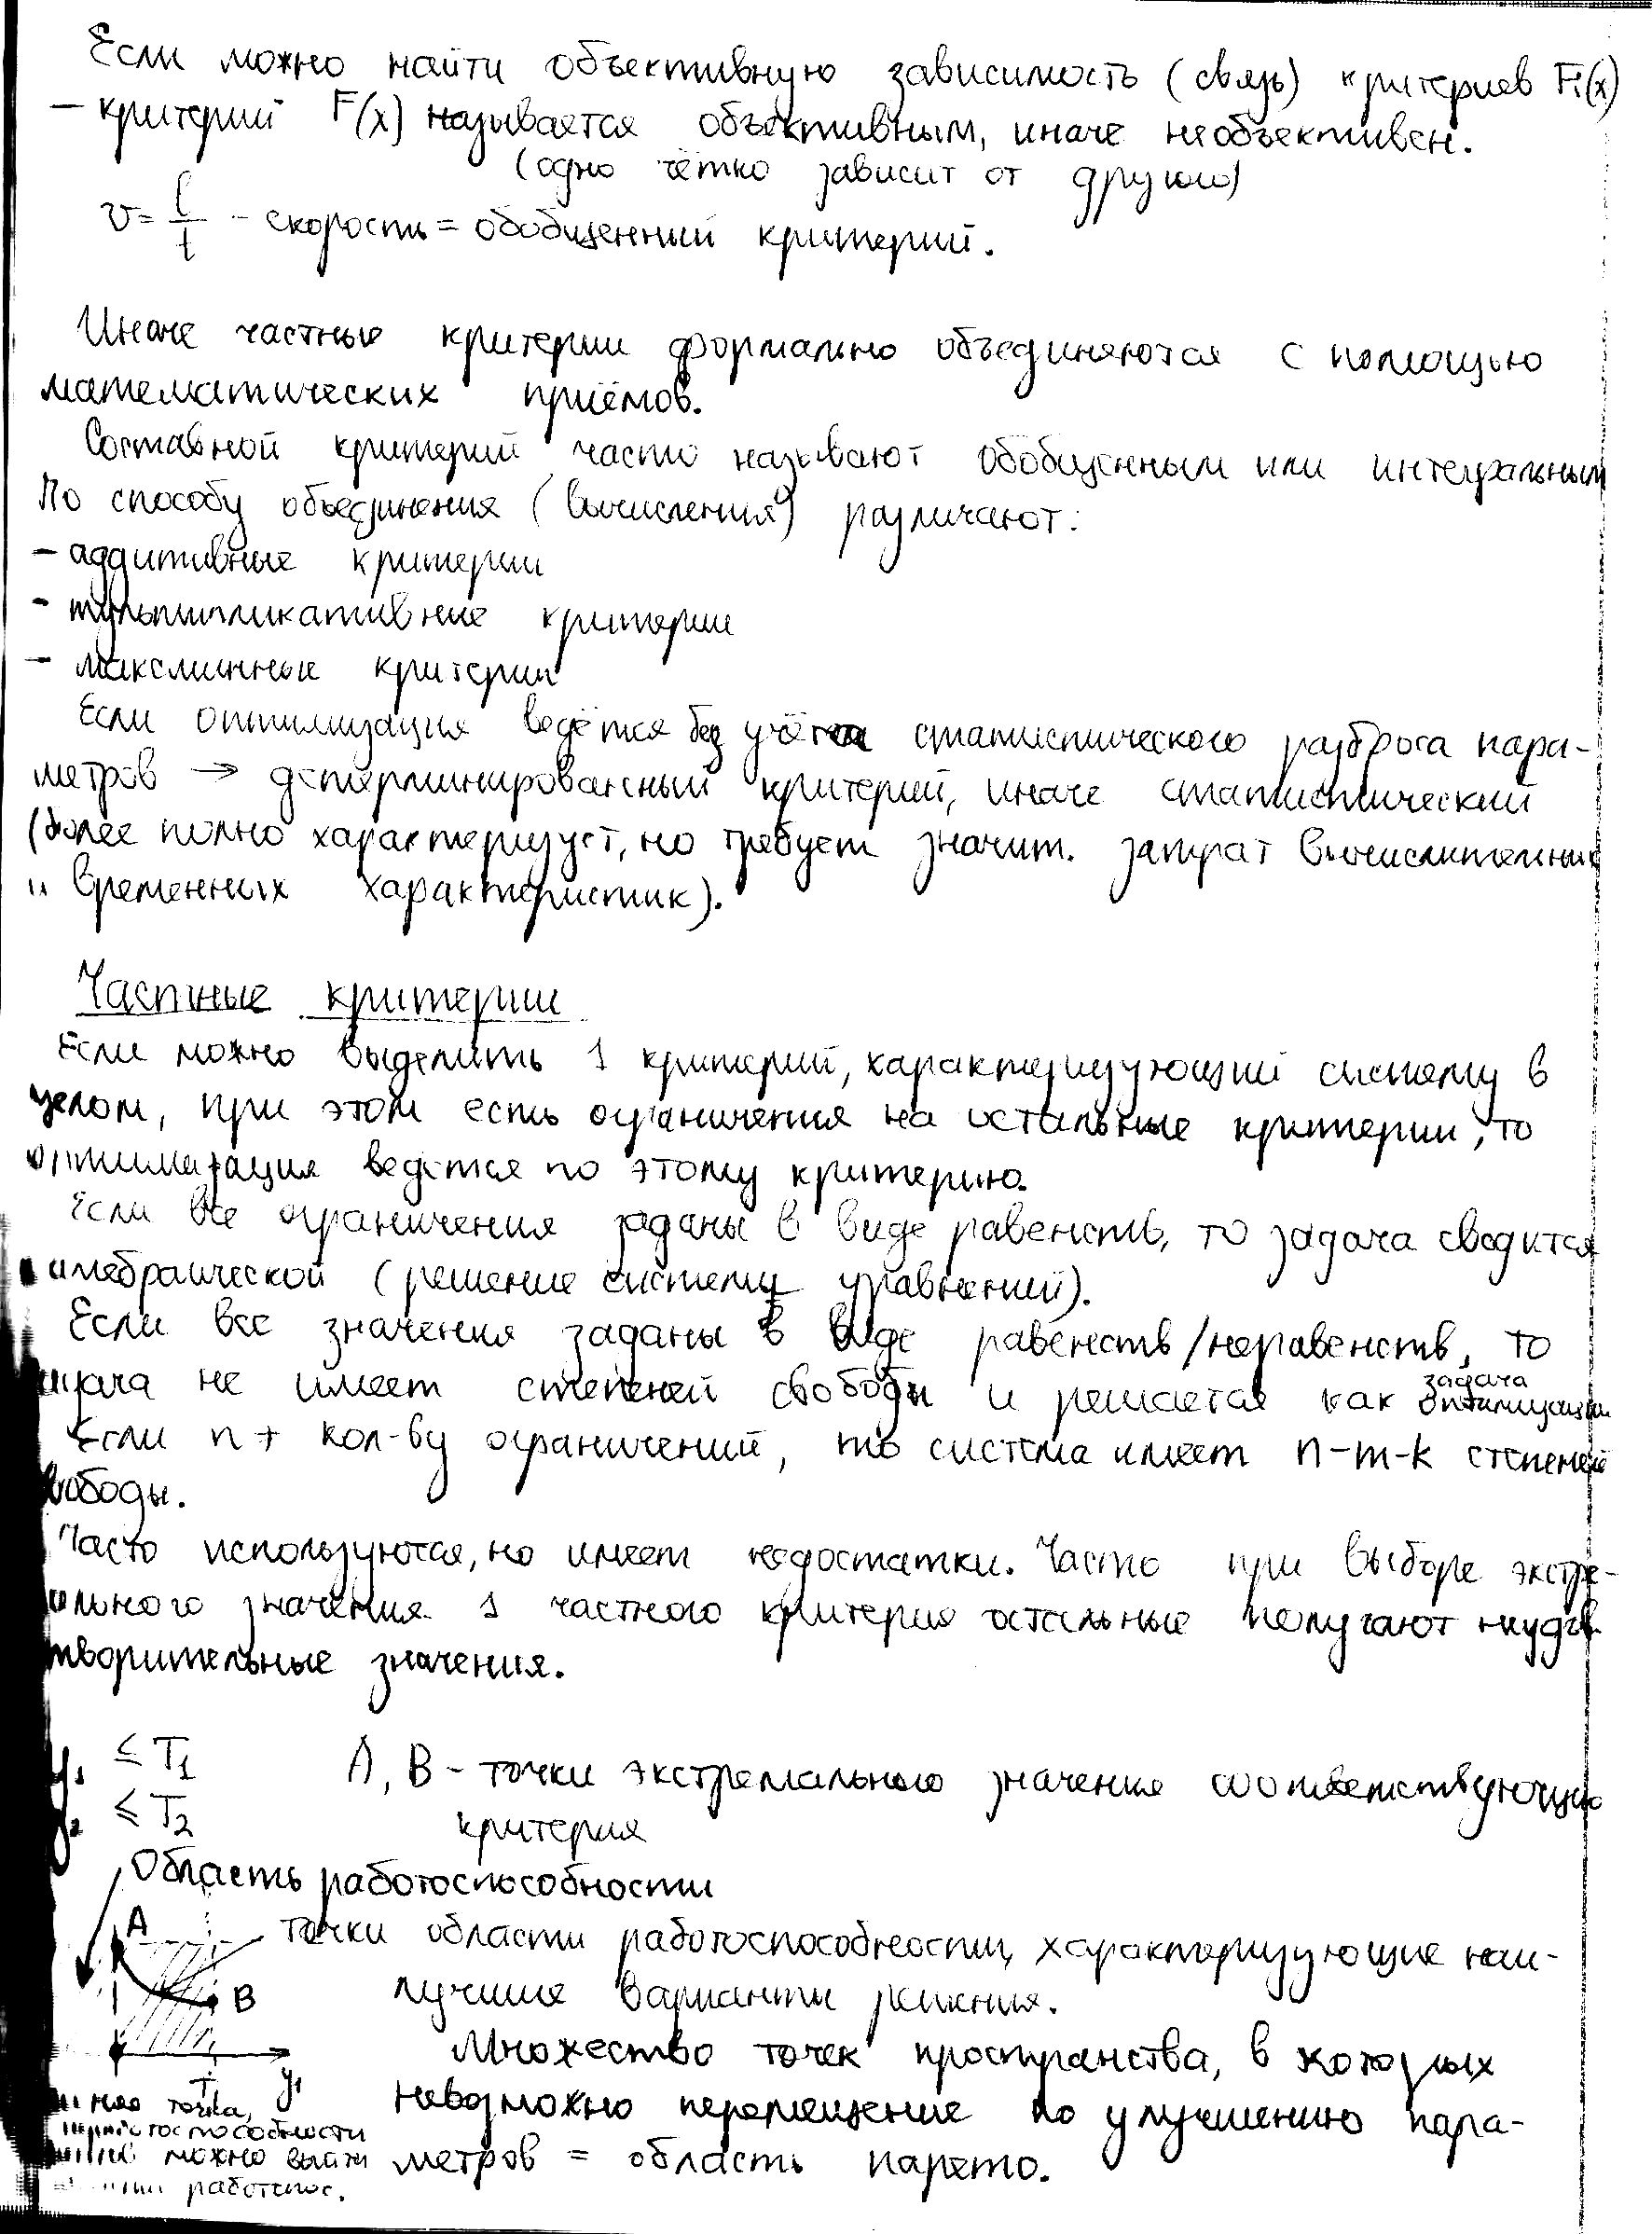 Если можно найти объективную зависимость (связь) критериев Fi(x)
– критерий F(x) называется объективным, иначе необъективен.
(одно чётко зависит от другого)
v = l/t – скорость = обобщенный критерий.
Иначе частные критерии формально объединяются с помощью
математических приёмов.
Составной критерий часто называют обобщенным или интегральным
По способу объединения (вычисления) различают:
– аддитивные критерии
- мультипликативные критерии
- максминные критерии
Если оптимизация ведётся без учёта статистического разброса пара-
метров → детерминированный критерий, иначе статистический
(более полно характеризует, но требует значит. затрат вычислительных
и временных характеристик).
Частные критерии
Если можно выделить 1 критерий, характеризующий систему в
целом, при этом есть ограничения на остальные критерии, то
оптимизация ведется по этому критерию.
Если все ограничения заданы в виде равенств, то задача сводится
алгебраической (решение системы уравнений).
Если все значения заданы в виде равенств/неравенств, то
задача не имеет степеней свободы и решается как задача оптимизации
Если n + кол-ву ограничений, то система имеет n-m-k степеней
свободы.
Часто используются, но имеет недостатки. Часто при выборе экстре-
ального значения 1 частного критерия остальные получают неудов
творительные значения.
y1 ≤ T1 A, B – точки экстремального значения соответствующего
y2 ≤ T2 критерия
Область работоспособности
A точки области работоспособности, характеризующие наи-
B лучшие варианты решения.
Множество точек пространства, в которых
T1 y1 невозможно перемещение по улучшению пара-
метров = область парето.
точка,
работоспособности
можно выйти
работоспос.